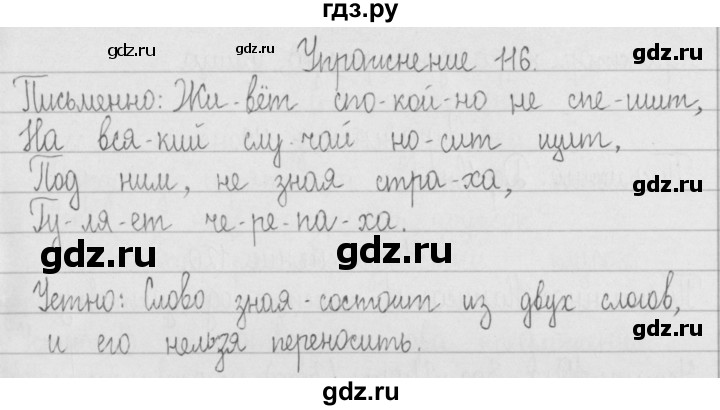 гдз.ру
gdz.ru gdz.ru Упражнение 116. gdz.ru
Письменно: Жи-вёт спо-кой-но не спе-шит,
На вся-кий слу-чай но-сит щит,
Под ним, не зная стра-ха,
Гу-ля-ет че-ре-па-ха.
gdz.ru gdz.ru gdz.ru gdz.ru
Устно: Слово зная - состоит из двух слогов,
и его нельзя переносить.
gdz.ru
gdz.ru